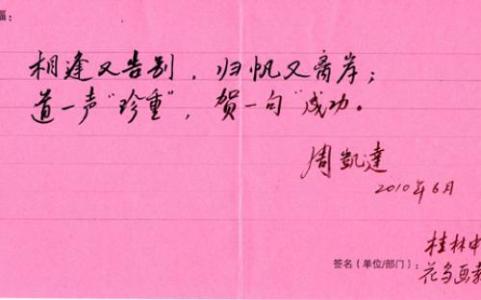 福：
相逢又告别，归帆又离岸；
道一声“珍重”，贺一句“成功。
周凯达
2010年6月
桂林中
签名（单位/部门）：花鸟画